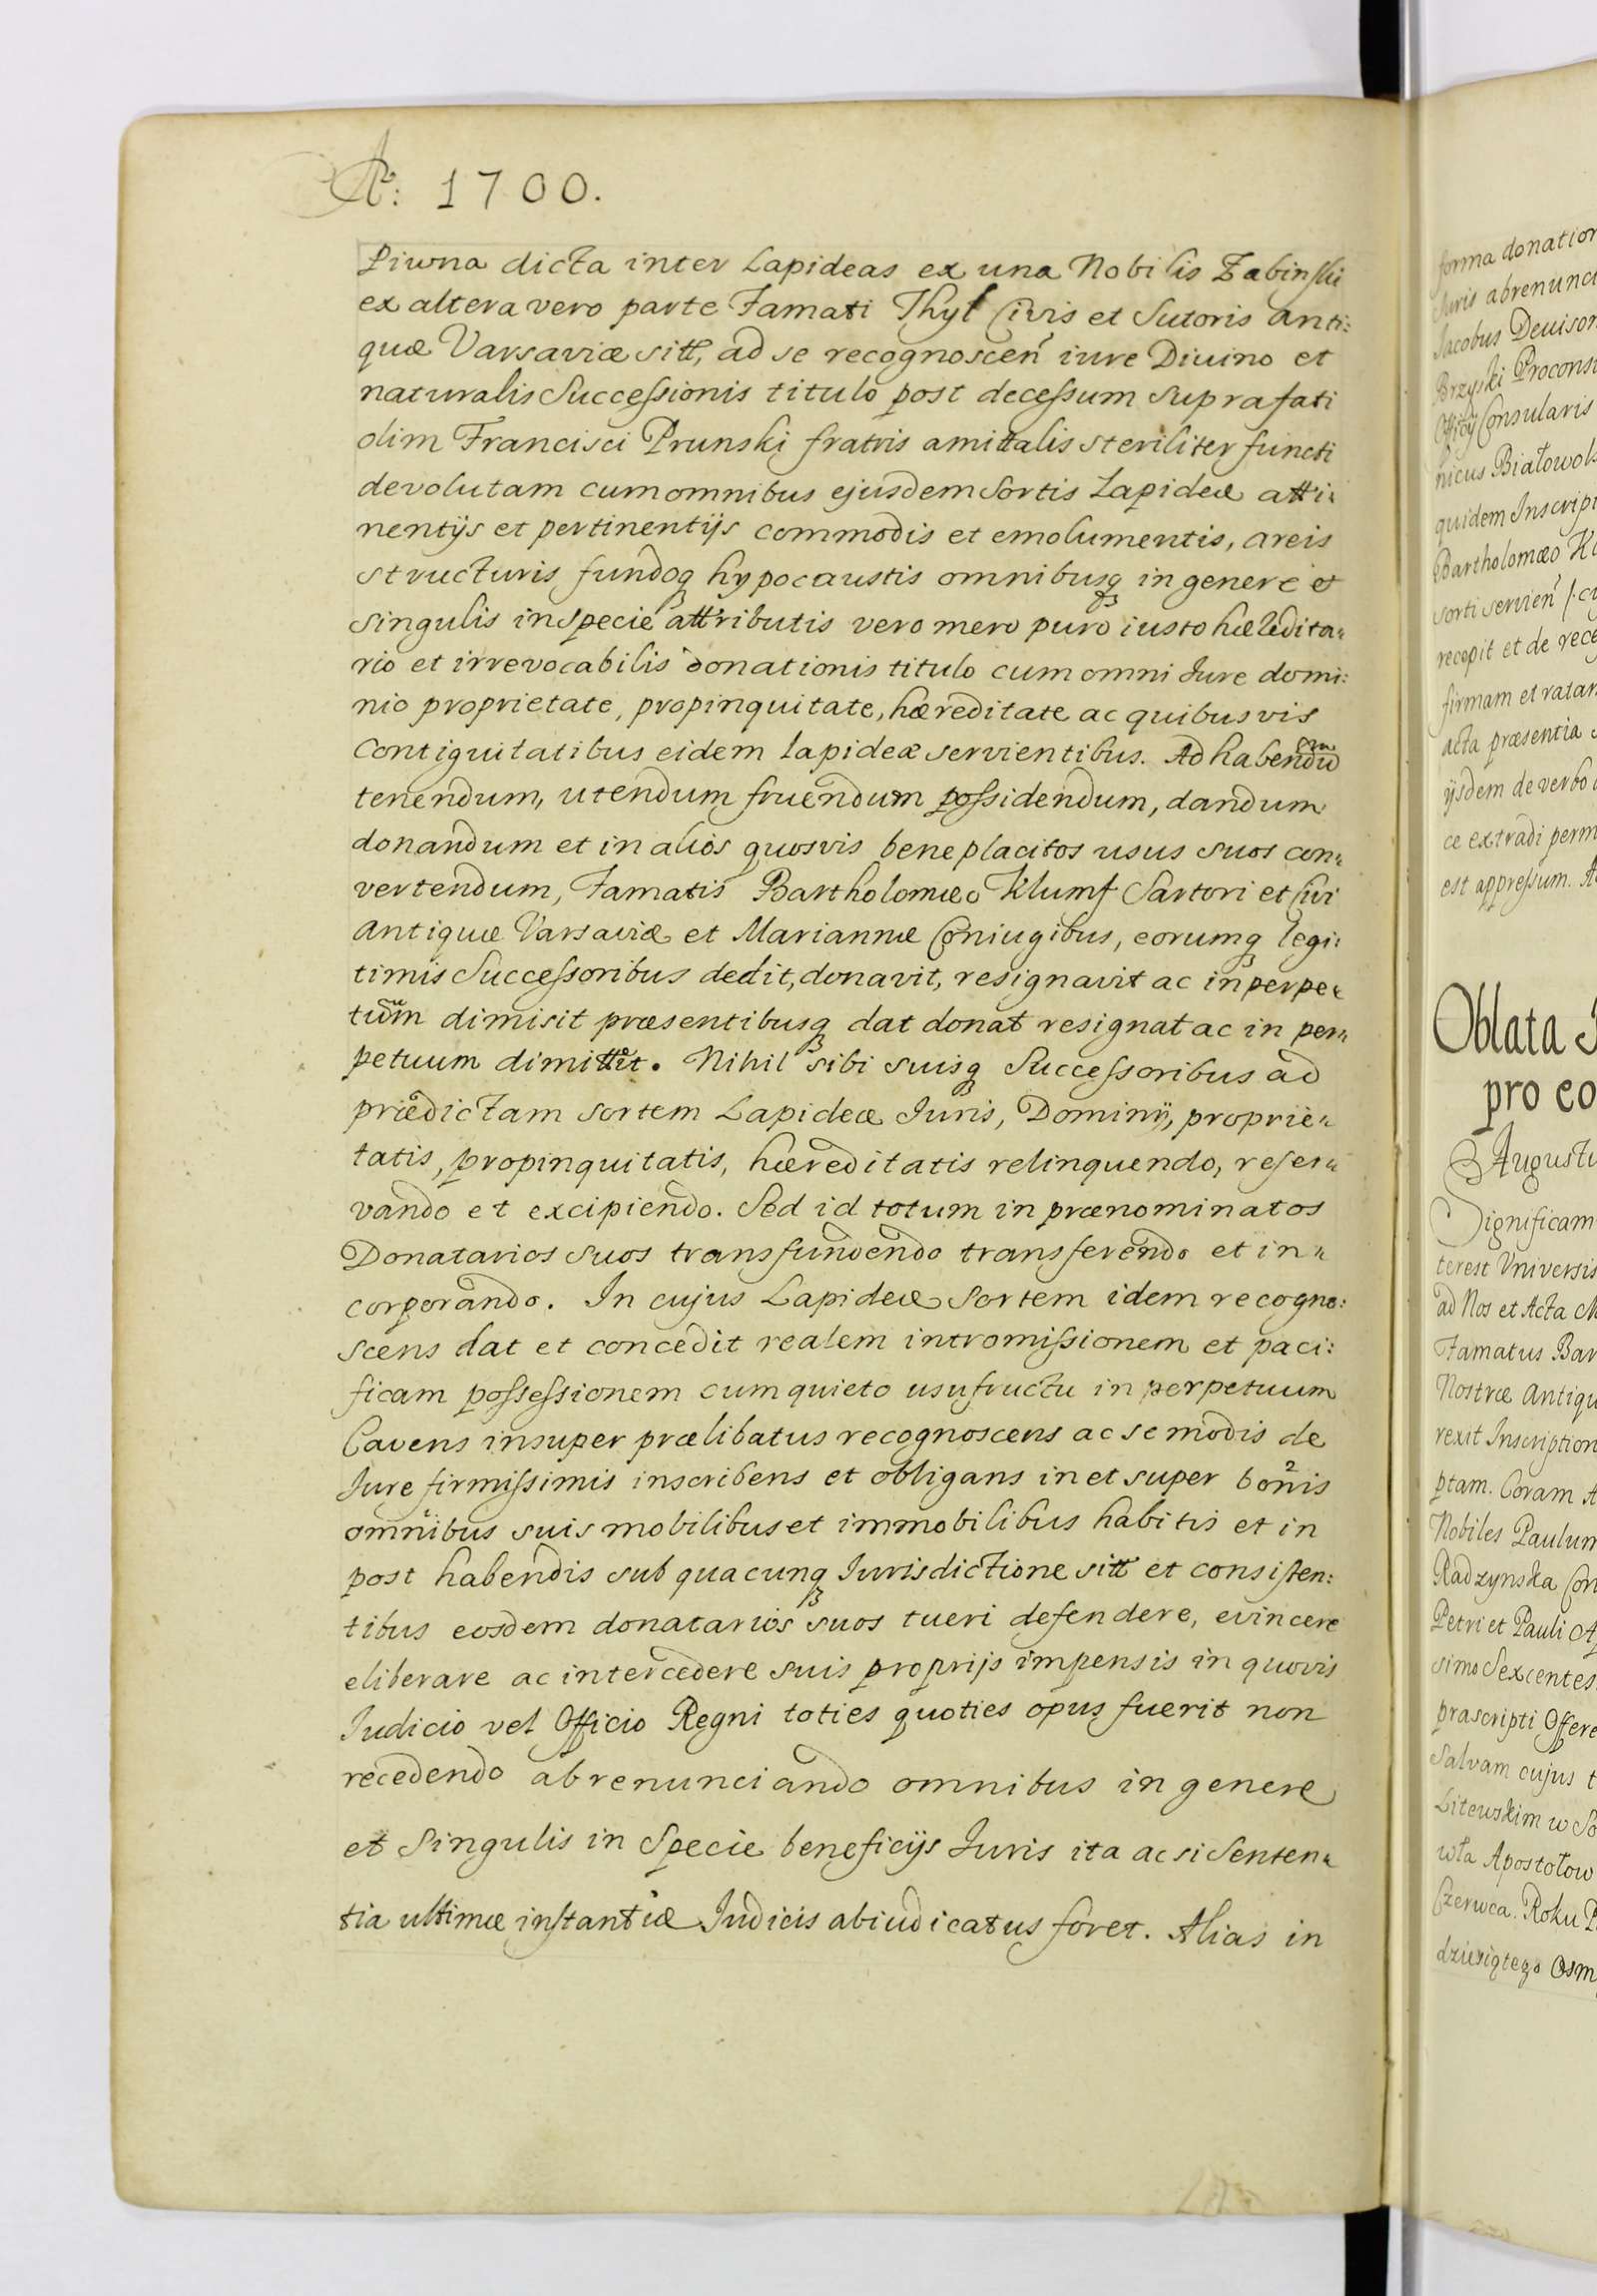 Aº: 1700.
Piwna dicta inter Lapideas ex una Nobilis Zabinski
ex altera vero parte Famati Thyl Civis et Sutoris Anti:
quæ Varsaviæ sitt, ad se recognoscen̄ iure Divino et
naturalis Successionis titulo post decessum suprafati
olim Francisci Prunski fratris amittalis steriliter functi
devolutam cum omnibus ejusdem Sortis Lapideæ atti:
nentijs et pertinentijs commodis et emolumentis, areis
structuris fundoq3 hypocaustis omnibusq3 in genere et
singulis in specie attributis vero mero puro iusto hæredita:
rio et irrevocabilis donationis titulo cum omni Iure domi:
nio proprietate, propinquitate, hæreditate ac quibusvis
Contiguitatibus eidem lapideæ servientibus. Ad habendum
tenendum, utendum fruendum possidendum, dandum
donandum et in alios quosvis beneplacitos usus suos con:
vertendum, Famatis Bartholomæo Klumf Sartori et Civi
Antiquæ Varsaviæ et Mariannæ Coniugibus, eorumq3 legi:
timis Successoribus dedit, donavit, resignavit ac in perpe:
tuum dimisit præsentibusq3 dat donat resignat ac in per:
petuum dimittit. Nihil sibi suisq3 Successoribus ad
prædictam sortem Lapideæ Iuris, Dominij, proprie:
tatis, propinquitatis, hæreditatis relinquendo, reser:
vando et excipiendo. Sed id totum in prænominatos
Donatarios suos transfundendo transferendo et in:
corporando. In cujus Lapideæ Sortem idem recogno:
scens dat et concedit realem intromissionem et paci:
ficam possessionem cum quieto usufructu in perpetuum
Cavens insuper prælibatus recognoscens ac se modis de
Iure firmissimis inscribens et obligans in et super bonis
omnibus suis mobilibus et immobilibus habitis et in
post habendis sub quacunq3 Iurisdictione sitt et consisten:
tibus eosdem donatarios suos tueri defendere, evincere
eliberare ac intercedere suis proprijs impensis in quovis
Iudicio vel Officio Regni toties quoties opus fuerit non
recedendo abrenunciando omnibus in genere
et Singulis in Specie beneficijs Iuris ita ac si Senten:
tia ultimæ instantiæ Iudicis abiudicatus foret. Alias in
forma donation
Iuris abrenunci
Jacobus Devison
Brzyski Proconsu
Officij Consularis
nicus Białowols
quidem Inscripi
Bartholomæo Kl
sorti servien̄ /: cu
recepit et de rece
firmam et ratam
acta præsentia s
ijsdem de verbo
ce extradi perm
est appressum. A
Oblata I
pro co
Augustu
Significam
terest Vniversis
ad Nos et Acta M
Famatus Bar
Nostræ Antiqu
rexit Inscription
ptam. Coram A
Nobiles Paulum
Radzynska Con
Petri et Pauli Ap
simo Sexcentes
præscripti Offere
Salvam cujus t
Litewskim w So
wła Apostołow
Czerwca. Roku P
dziesiątego Osm